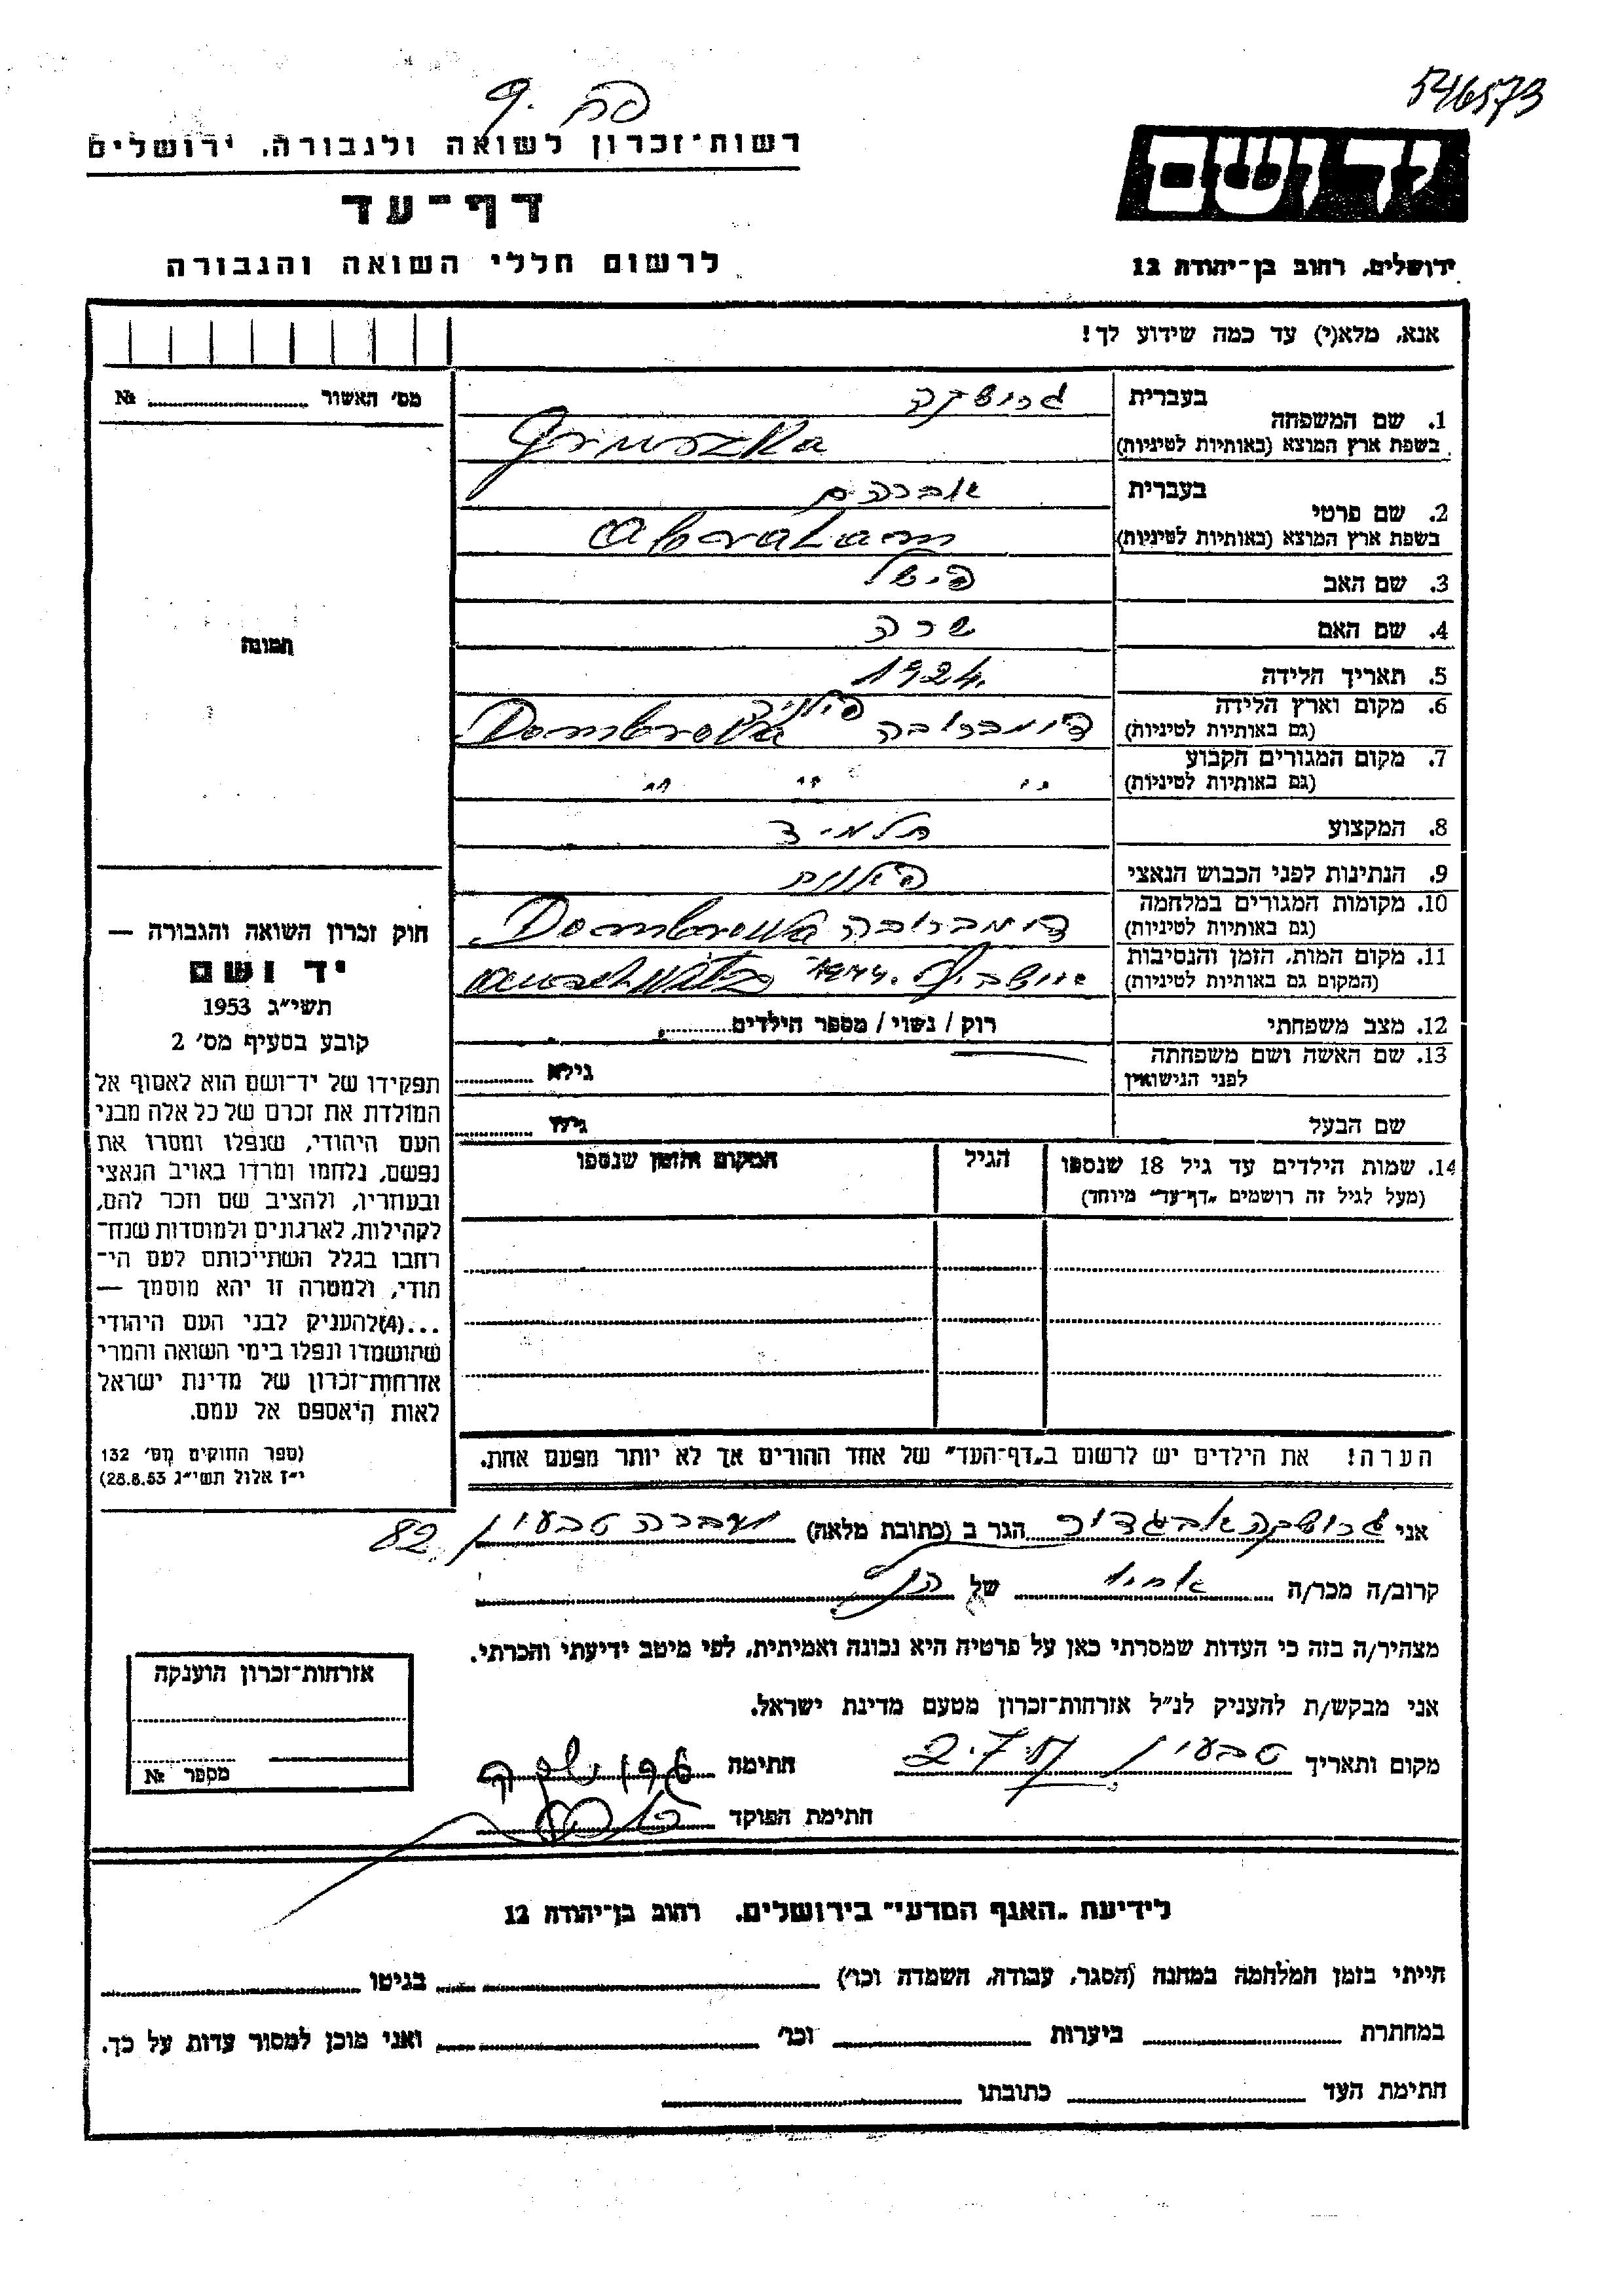 546573
פה. 9
רשות־זכרון לשואה ולגבורה, ירושלים
יד ושם
דף־עד
לרשום חללי השואה והגבורה
ירושלים, רחוב בן־יהודה 12
אנא, מלא(י) עד כמה שידוע לך!
מס' האשור № 
בעברית גרושקה
1. שם המשפחה
בשפת ארץ המוצא (באותיות לטיניות) Gruszka
בעברית אברהם
2. שם פרטי
בשפת ארץ המוצא (באותיות לטיניות) Abraham
3. שם האב פישל
4. שם האם שרה
5. תאריך הלידה 1924.
6. מקום וארץ הלידה פולניה
(גם באותיות לטיניות) דומברובה Dombrowa
7. מקום המגורים הקבוע
(גם באותיות לטיניות) " " "
8. המקצוע תלמיד
9. הנתינות לפני הכבוש הנאצי
10. מקומות המגורים במלחמה
(גם באותיות לטיניות) דומברובה Dombrowa
11. מקום המות, הזמן והנסיבות
(המקום גם באותיות לטיניות) 1944. auschwitz
12. מצב משפחתי רוק / נשוי / מספר הילדים
13. שם האשה ושם משפחתה
לפני הנישואין גילא
שם הבעל גילו
14. שמות הילדים עד גיל 18 שנספו הגיל המקום והזמן שנספו
(מעל לגיל זה רושמים "דף־עד" מיוחד)
תמונה
חוק זכרון השואה והגבורה —
יד ושם
תשי"ג 1953
קובע בסעיף מס' 2
תפקידו של יד־ושם הוא לאסוף אל
המולדת את זכרם של כל אלה מבני
העם היהודי, שנפלו ומסרו את
נפשם, נלחמו ומרדו באויב הנאצי
ובעוזריו, ולהציב שם וזכר להם,
לקהילות, לארגונים ולמוסדות שנח־
רחבו בגלל השתייכותם לעם הי־
הודי, ולמטרה זו יהא מוסמך —
...(4)להעניק לבני העם היהודי
שהושמדו ונפלו בימי השואה והמרי
אזרחות־זכרון של מדינת ישראל
לאות היאספם אל עמם.
(ספר החוקים מס' 132
י"ז אלול תשי"ג 28.8.53)
הערה! את הילדים יש לרשום ב"דף־העד" של אחד ההורים אך לא יותר מפעם אחת.
אני גרושקה אביגדור הגר ב (כתובת מלאה) מעברה טבעון 82
קרוב/ה מכר/ה אחיו של הנ"ל
מצהיר/ה בזה כי העדות שמסרתי כאן על פרטיה היא נכונה ואמיתית, לפי מיטב ידיעתי והכרתי.
אני מבקש/ת להעניק לנ"ל אזרחות־זכרון מטעם מדינת ישראל.
מקום ותאריך טבעון 2.7.57 חתימה
חתימת הפוקד
אזרחות־זכרון הוענקה
מספר №
לידיעת "האגף המדעי" בירושלים, רחוב בן־יהודה 12
הייתי בזמן המלחמה במחנה (הסגר, עבודה, השמדה וכו') בגיטו
במחתרת ביערות וכו' ואני מוכן למסור עדות על כך.
חתימת העד כתובתו